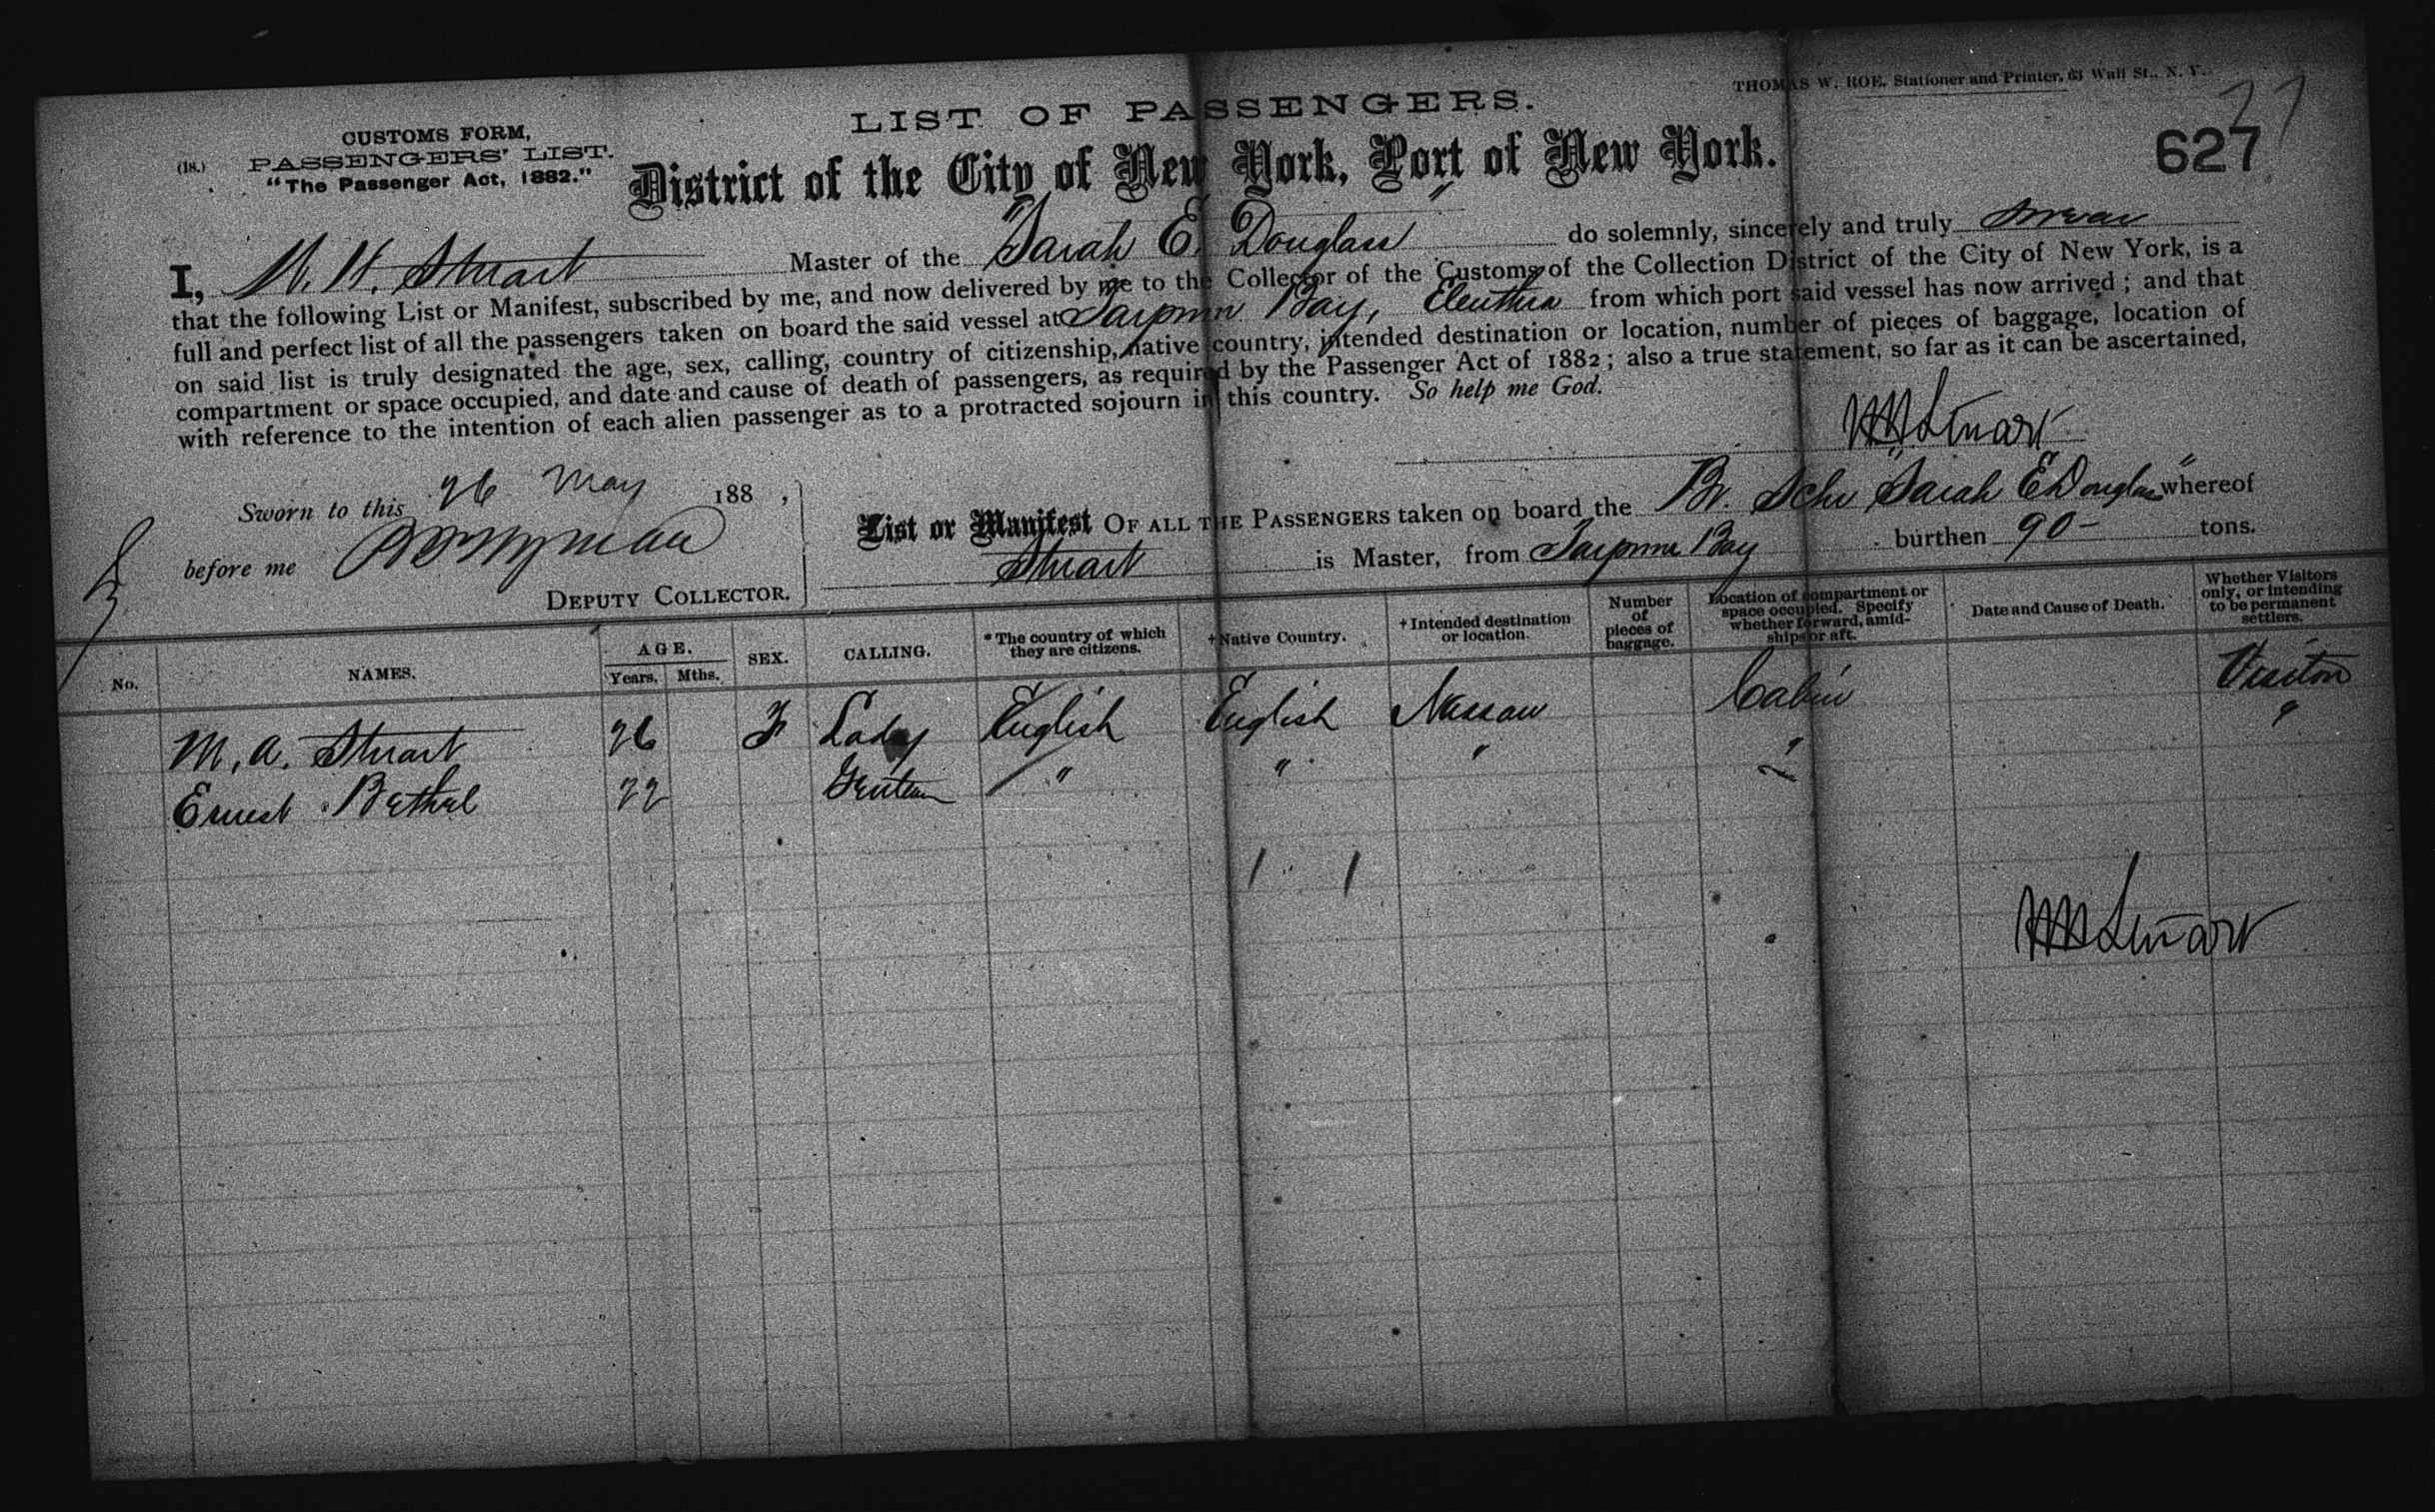 THOMAS W. ROE, Stationer and Printer, 63 Wall St., N. Y.
LIST OF PASSENGERS.
(18.)
CUSTOMS FORM,
PASSENGERS' LIST.
"The Passenger Act, 1882."
District of the City of New York, Port of New York.
627
I, W. H. Stuart Master of the "Sarah E. Douglass" do solemnly, sincerely and truly swear
that the following List or Manifest, subscribed by me, and now delivered by me to the Collector of the Customs of the Collection District of the City of New York, is a
full and perfect list of all the passengers taken on board the said vessel at Bay, Eleuthra from which port said vessel has now arrived; and that
on said list is truly designated the age, sex, calling, country of citizenship, native country, intended destination or location, number of pieces of baggage, location of
compartment or space occupied, and date and cause of death of passengers, as required by the Passenger Act of 1882; also a true statement, so far as it can be ascertained,
with reference to the intention of each alien passenger as to a protracted sojourn in this country. So help me God.
WHStuart
Sworn to this 26 May 188 ,
before me
DEPUTY COLLECTOR.
List or Manifest OF ALL THE PASSENGERS taken on board the Br. Schr "Sarah E Douglass" whereof
Stuart is Master, from Bay burthen 90 - tons.
No. NAMES. AGE. Years. Mths. SEX. CALLING. *The country of which they are citizens. †Native Country. †Intended destination or location. Number of pieces of baggage. Location of compartment or space occupied. Specify whether forward, amidships or aft. Date and Cause of Death. Whether Visitors only, or intending to be permanent settlers.
M. A. Stuart 26 F Lady English English Nassau Cabin Visitor
Ernest Bethel 22 " " " " "
1 1
WHStuart